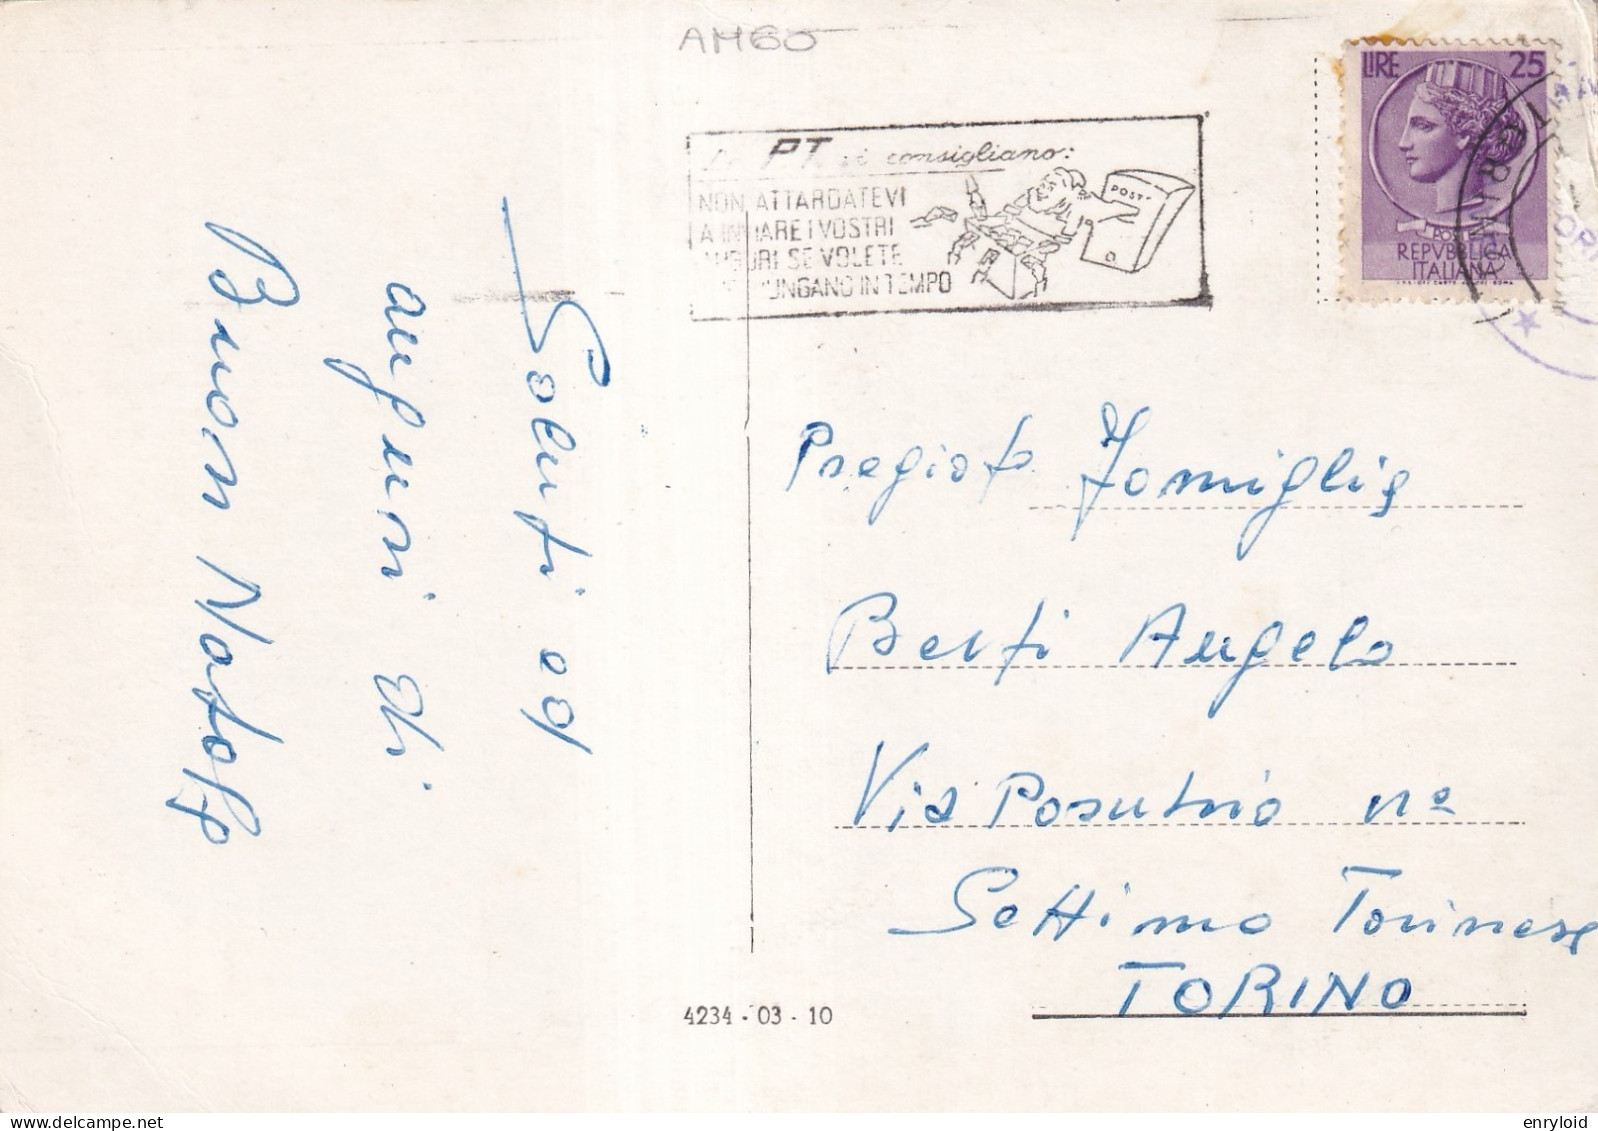 AM60
PT vi consigliano:
NON ATTARDATEVI
A INVIARE I VOSTRI
AUGURI SE VOLETE
GIUNGANO IN TEMPO
POST-
LIRE 25
POSTE
REPVBBLICA
ITALIANA
Saluti ed
auguri di
Buon Natale
Pregiata Famiglia
Berti Angelo
Via nº
Settimo Torinese
TORINO
4234 - 03 - 10
enryloid